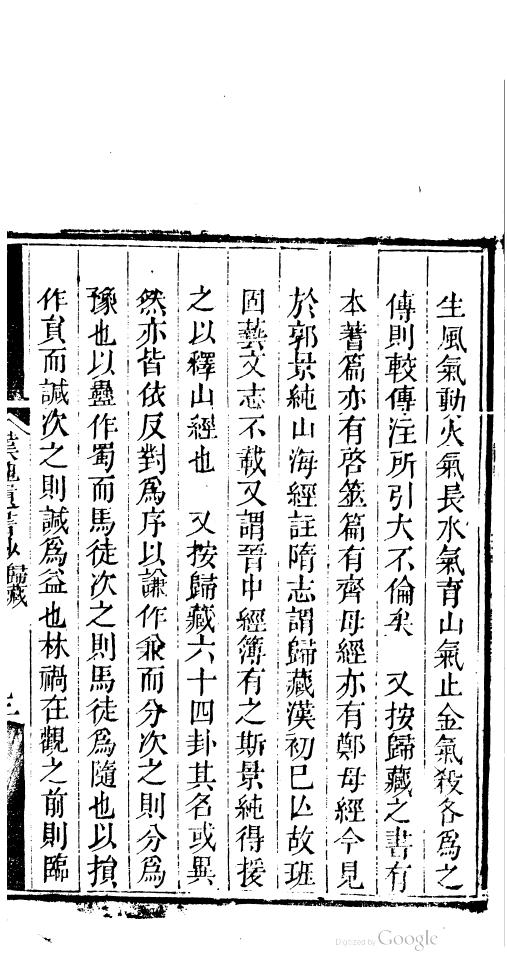 生風氣動火氣長水氣育山氣止金氣殺各爲之
傳則較傳注所引大不倫矣　又按歸藏之書有
本蓍篇亦有啓筮篇有齊母經亦有鄭母經今見
於郭景純山海經註隋志謂歸藏漢初已亾故班
固藝文志不載又謂晉中經簿有之斯景純得援
之以釋山經也　又按歸藏六十四卦其名或異
然亦皆依反對爲序以謙作兼而分次之則分爲
豫也以蠱作蜀而馬徒次之則馬徒爲隨也以損
作員而諴次之則諴爲益也林禍在觀之前則臨
漢魏遺書鈔 歸藏
Digitized by Google